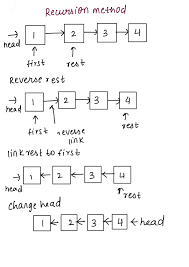 Recursion method
head 1 2 3 4
first rest
Reverse rest
head 1 2 3 4
first reverse link rest
link rest to first
head 1 2 3 4
rest
Change head
1 2 3 4 head